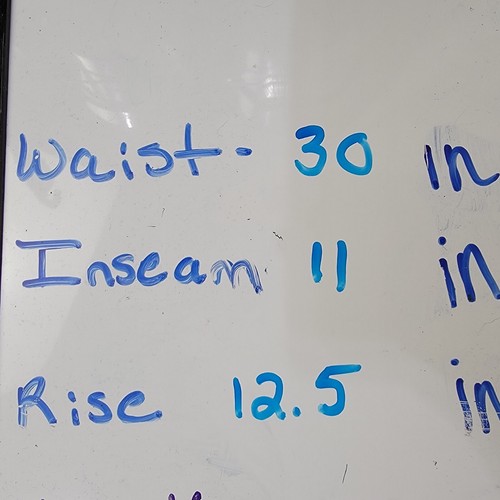 Waist- 30 in
Inseam 11 in
Rise 12.5 in